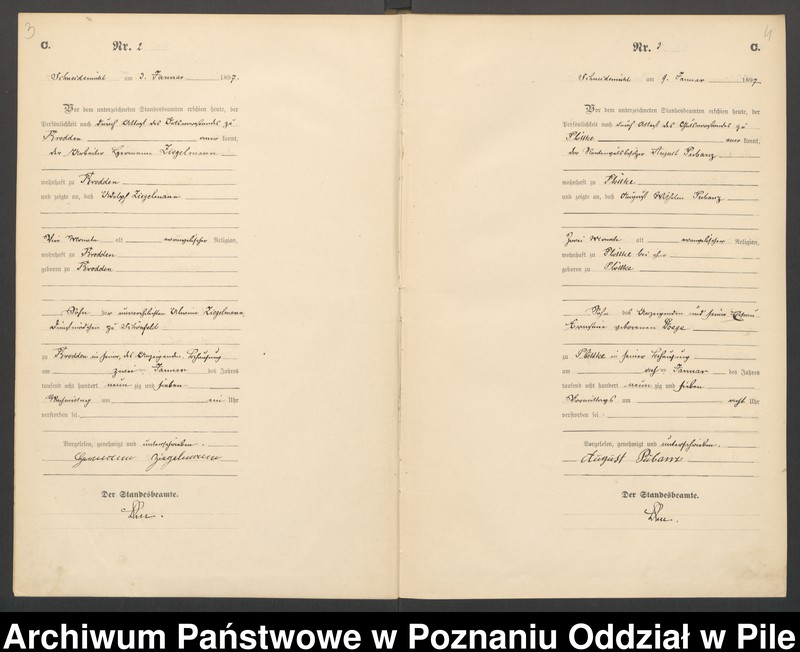 3
C.
Nr. 2
Schneidemühl am 3. Januar 1897.
Vor dem unterzeichneten Standesbeamten erschien heute, der
Persönlichkeit nach durch Attest des Ortsvorstandes zu
Brodden anerkannt,
der Arbeiter Hermann Ziegelmann
wohnhaft zu Brodden
und zeigte an, daß Adolf Ziegelmann
Vier Monate alt evangelischer Religion,
wohnhaft zu Brodden
geboren zu Brodden
Sohn der unverehelichten Ziegelmann,
Dienstmädchen zu Schönfeld
zu Brodden in seiner, des Anzeigenden, Behausung
am zwei Januar des Jahres
tausend acht hundert neunzig und sieben
Nachmittag um ein Uhr
verstorben sei.
Vorgelesen, genehmigt und unterschrieben.
Hermann Ziegelmann
Der Standesbeamte.
4
Nr. 3
C.
Schneidemühl am 9. Januar 1897
Vor dem unterzeichneten Standesbeamten erschien heute, der
Persönlichkeit nach durch Attest des Ortsvorstandes zu
Plöttke anerkannt,
der August Pubanz
wohnhaft zu Plöttke
und zeigte an, daß August Wilhelm Pubanz
Zwei Monate alt evangelischer Religion,
wohnhaft zu Plöttke bei ihm
geboren zu Plöttke
Sohn des Anzeigenden und seiner Ehefrau
Ernstine geborenen
zu Plöttke in seiner Behausung
am acht Januar des Jahres
tausend acht hundert neunzig und sieben
Vormittags um acht Uhr
verstorben sei.
Vorgelesen, genehmigt und unterschrieben.
August Pubanz
Der Standesbeamte.
Archiwum Państwowe w Poznaniu Oddział w Pile